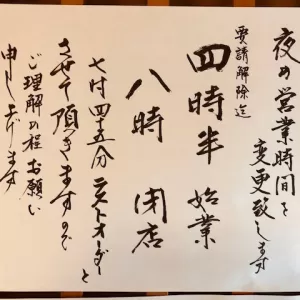 夜の営業時間を
変更致します
要請解除迄
四時半 始業
八時 閉店
七時四十五分 ラストオーダーと
させて頂きますので
ご理解の程お願い
申し上げます